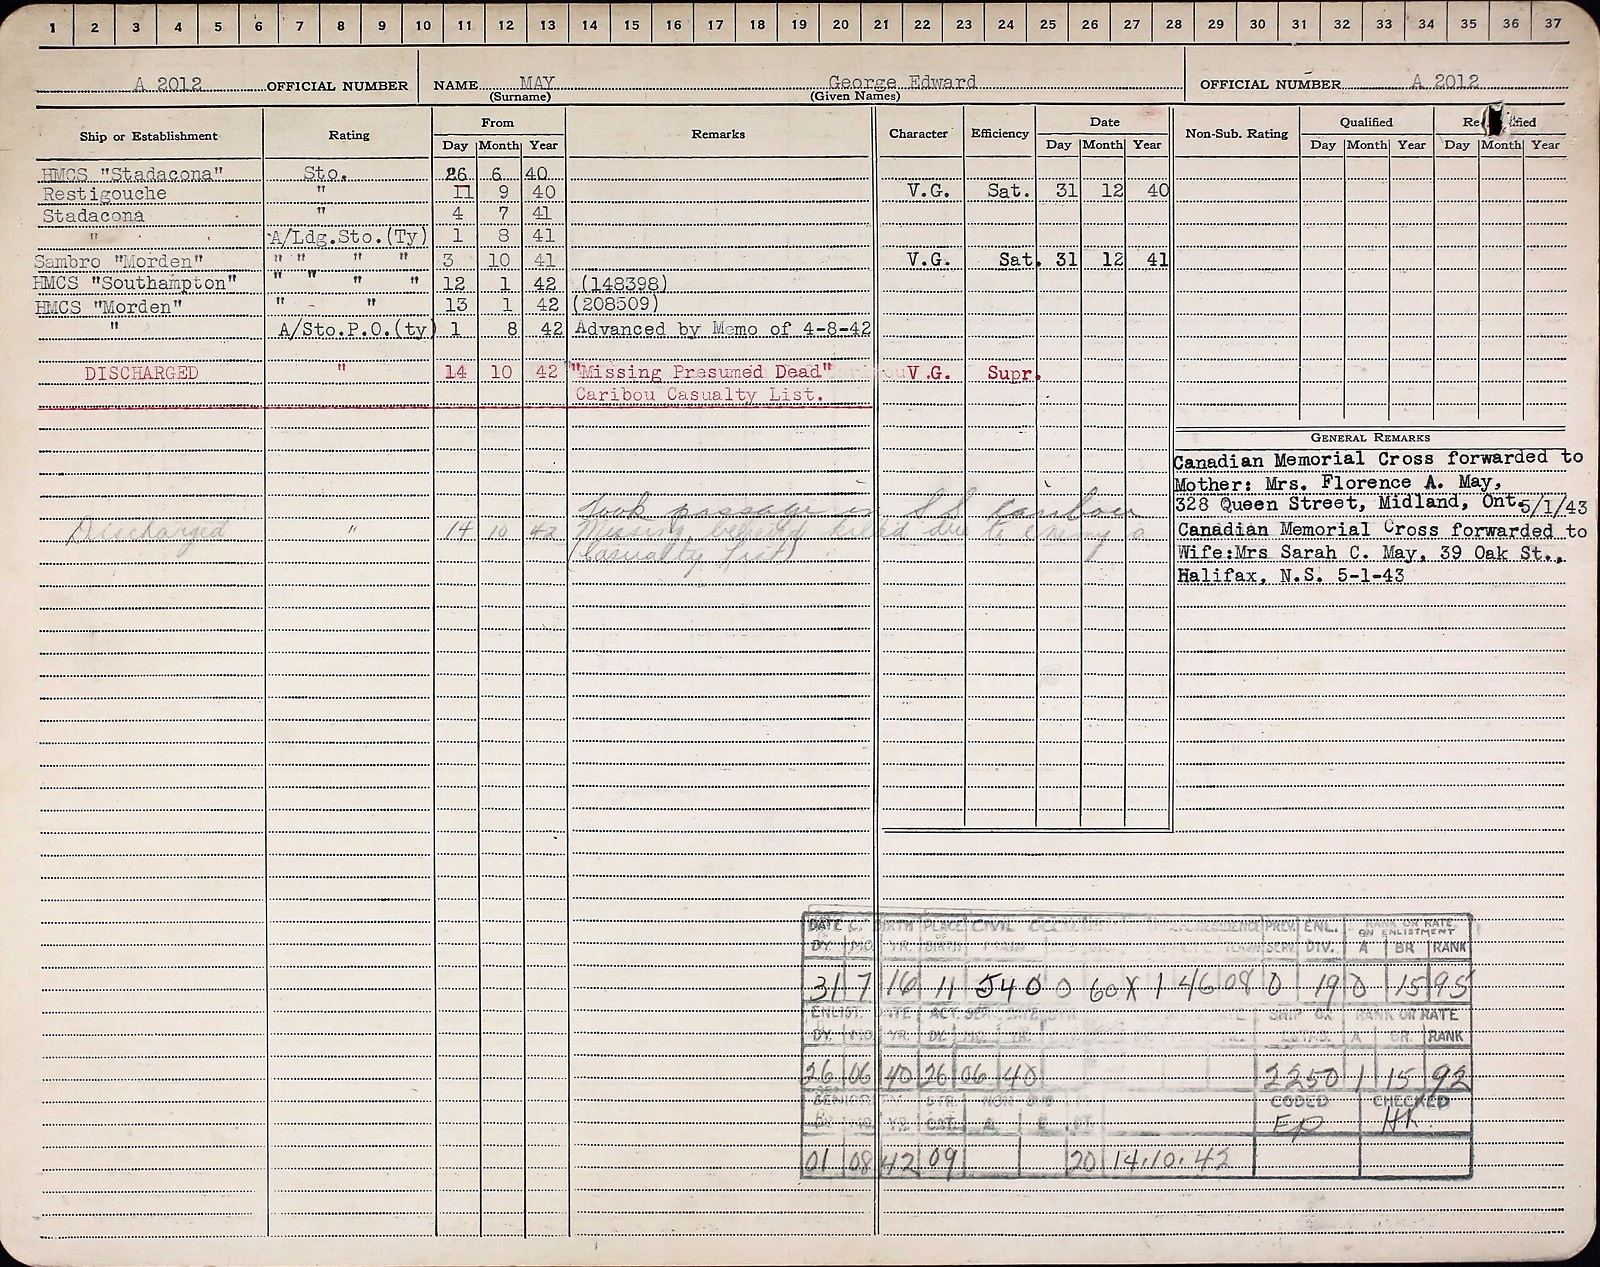 1 2 3 4 5 6 7 8 9 10 11 12 13 14 15 16 17 18 19 20 21 22 23 24 25 26 27 28 29 30 31 32 33 34 35 36 37
A 2012 OFFICIAL NUMBER NAME MAY George Edward OFFICIAL NUMBER A 2012
(Surname) (Given Names)
Ship or Establishment Rating From Remarks Character Efficiency Date Non-Sub. Rating Qualified
Day Month Year Day Month Year Day Month Year Day Month Year
HMCS "Stadacona" Sto. 26 6 40
Restigouche " 11 9 40 V.G. Sat. 31 12 40
Stadacona " 4 7 41
" A/Ldg.Sto.(Ty) 1 8 41
Sambro "Morden" " " " " 3 10 41 V.G. Sat. 31 12 41
HMCS "Southampton" " " " " 12 1 42 (148398)
HMCS "Morden" " - " 13 1 42 (208509)
" A/Sto.P.O.(ty) 1 8 42 Advanced by Memo of 4-8-42
DISCHARGED " 14 10 42 "Missing Presumed Dead" V.G. Supr.
Caribou Casualty List.
GENERAL REMARKS
Canadian Memorial Cross forwarded to
Mother: Mrs. Florence A. May,
328 Queen Street, Midland, Ont. 5/1/43
Canadian Memorial Cross forwarded to
Wife:Mrs Sarah C. May, 39 Oak St.,
Halifax, N.S. 5-1-43
Took passage in S S Caribou
Discharged " 14 10 42 Missing believed killed due to enemy a
(Casualty list)
DATE BIRTH PLACE CIVIL RESIDENCE PREV. ENL. RANK OR RATE
ON ENLISTMENT
DY. MO. YR. BIRTH SERV. DIV. A BR RANK
31 7 16 11 540 0 60 X 1 4608 0 19 0 15 95
ENLIST. DATE ACT. SERV. DATE SHIP OR RANK OR RATE
DY. MO. YR. DY. MO. YR. ESTAB. A BR. RANK
26 06 40 26 06 40 2250 1 15 92
SENIORITY STR. NON SUB CODED CHECKED
DY. MO. YR. CAT. A
01 08 42 09 20 14.10.42